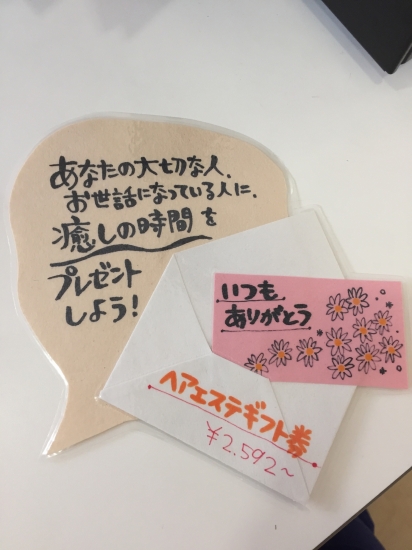 あなたの大切な人、
お世話になっている人に、
癒しの時間を
プレゼント
しよう!
いつも
ありがとう
ヘアエステギフト券
¥2.592~